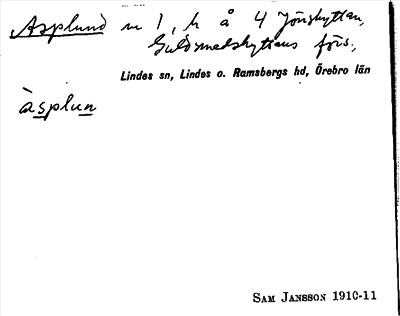 Asplund n 1, h å 4 Jönshyttan,
Guldsmedshyttans förs.,
Lindes sn, Lindes o. Ramsbergs hd, Örebro län
àsplun
Sam Jansson 1910-11